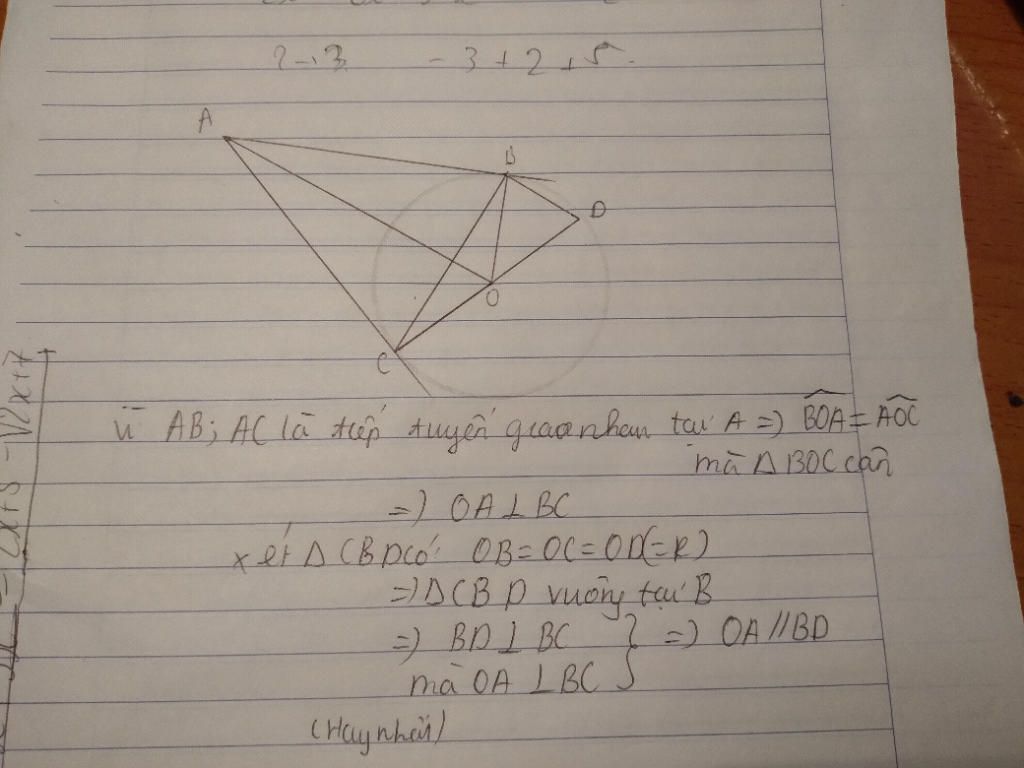 -3+2+5
A
B
D
O
C
Vì AB; AC là tiếp tuyến giao nhau tại A => BOA = AOC
mà Δ BOC cân
=) OA ⊥ BC
xét Δ CBD có: OB = OC = OD (=R)
=) Δ CBD vuông tại B
=) BD ⊥ BC } =) OA // BD
mà OA ⊥ BC